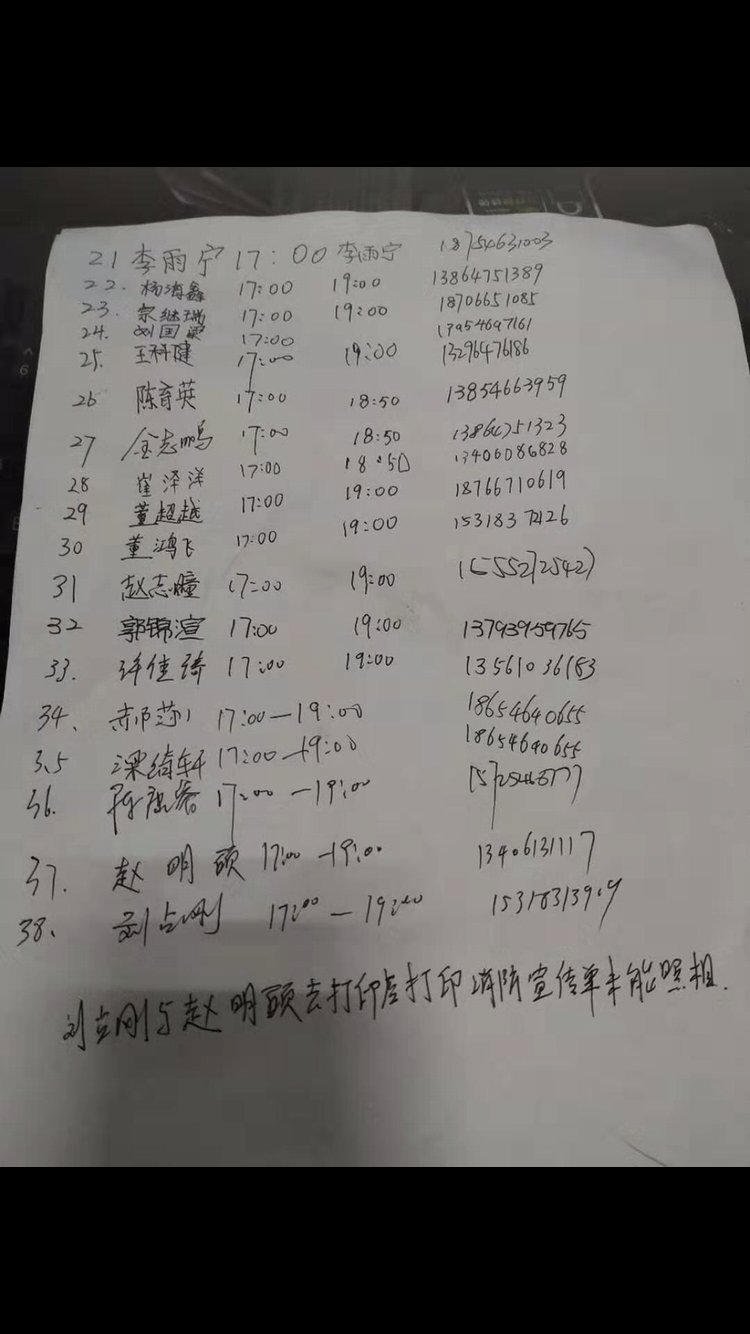 21 李雨宁 17:00 李雨宁 18754631003
22. 杨海鑫 17:00 19:00 13864751389
23. 宗继瑞 17:00 19:00 18706651085
24. 刘国梁 17:00 13954697161
25. 王科健 17:00 19:00 13296476186
26 陈育英 17:00 18:50 13854663959
27 金志鹏 17:00 18:50 13864751323
28 崔泽洋 17:00 18:50 13406086828
29 董超越 17:00 19:00 18766710619
30 董鸿飞 17:00 19:00 15318377426
31 赵志瞳 17:00 19:00
32 郭锦渲 17:00 19:00 13793959765
33. 许佳琦 17:00 19:00 13561036183
34、郝莎 17:00—19:00 18654640655
35 梁绮轩 17:00—19:00 18654640655
36. 17:00—19:00
37. 赵明硕 17:00—19:00 13406131117
38、刘占刚 17:00—19:00 15318313909
刘占刚与赵明硕去打印店打印消防宣传单未能照相.